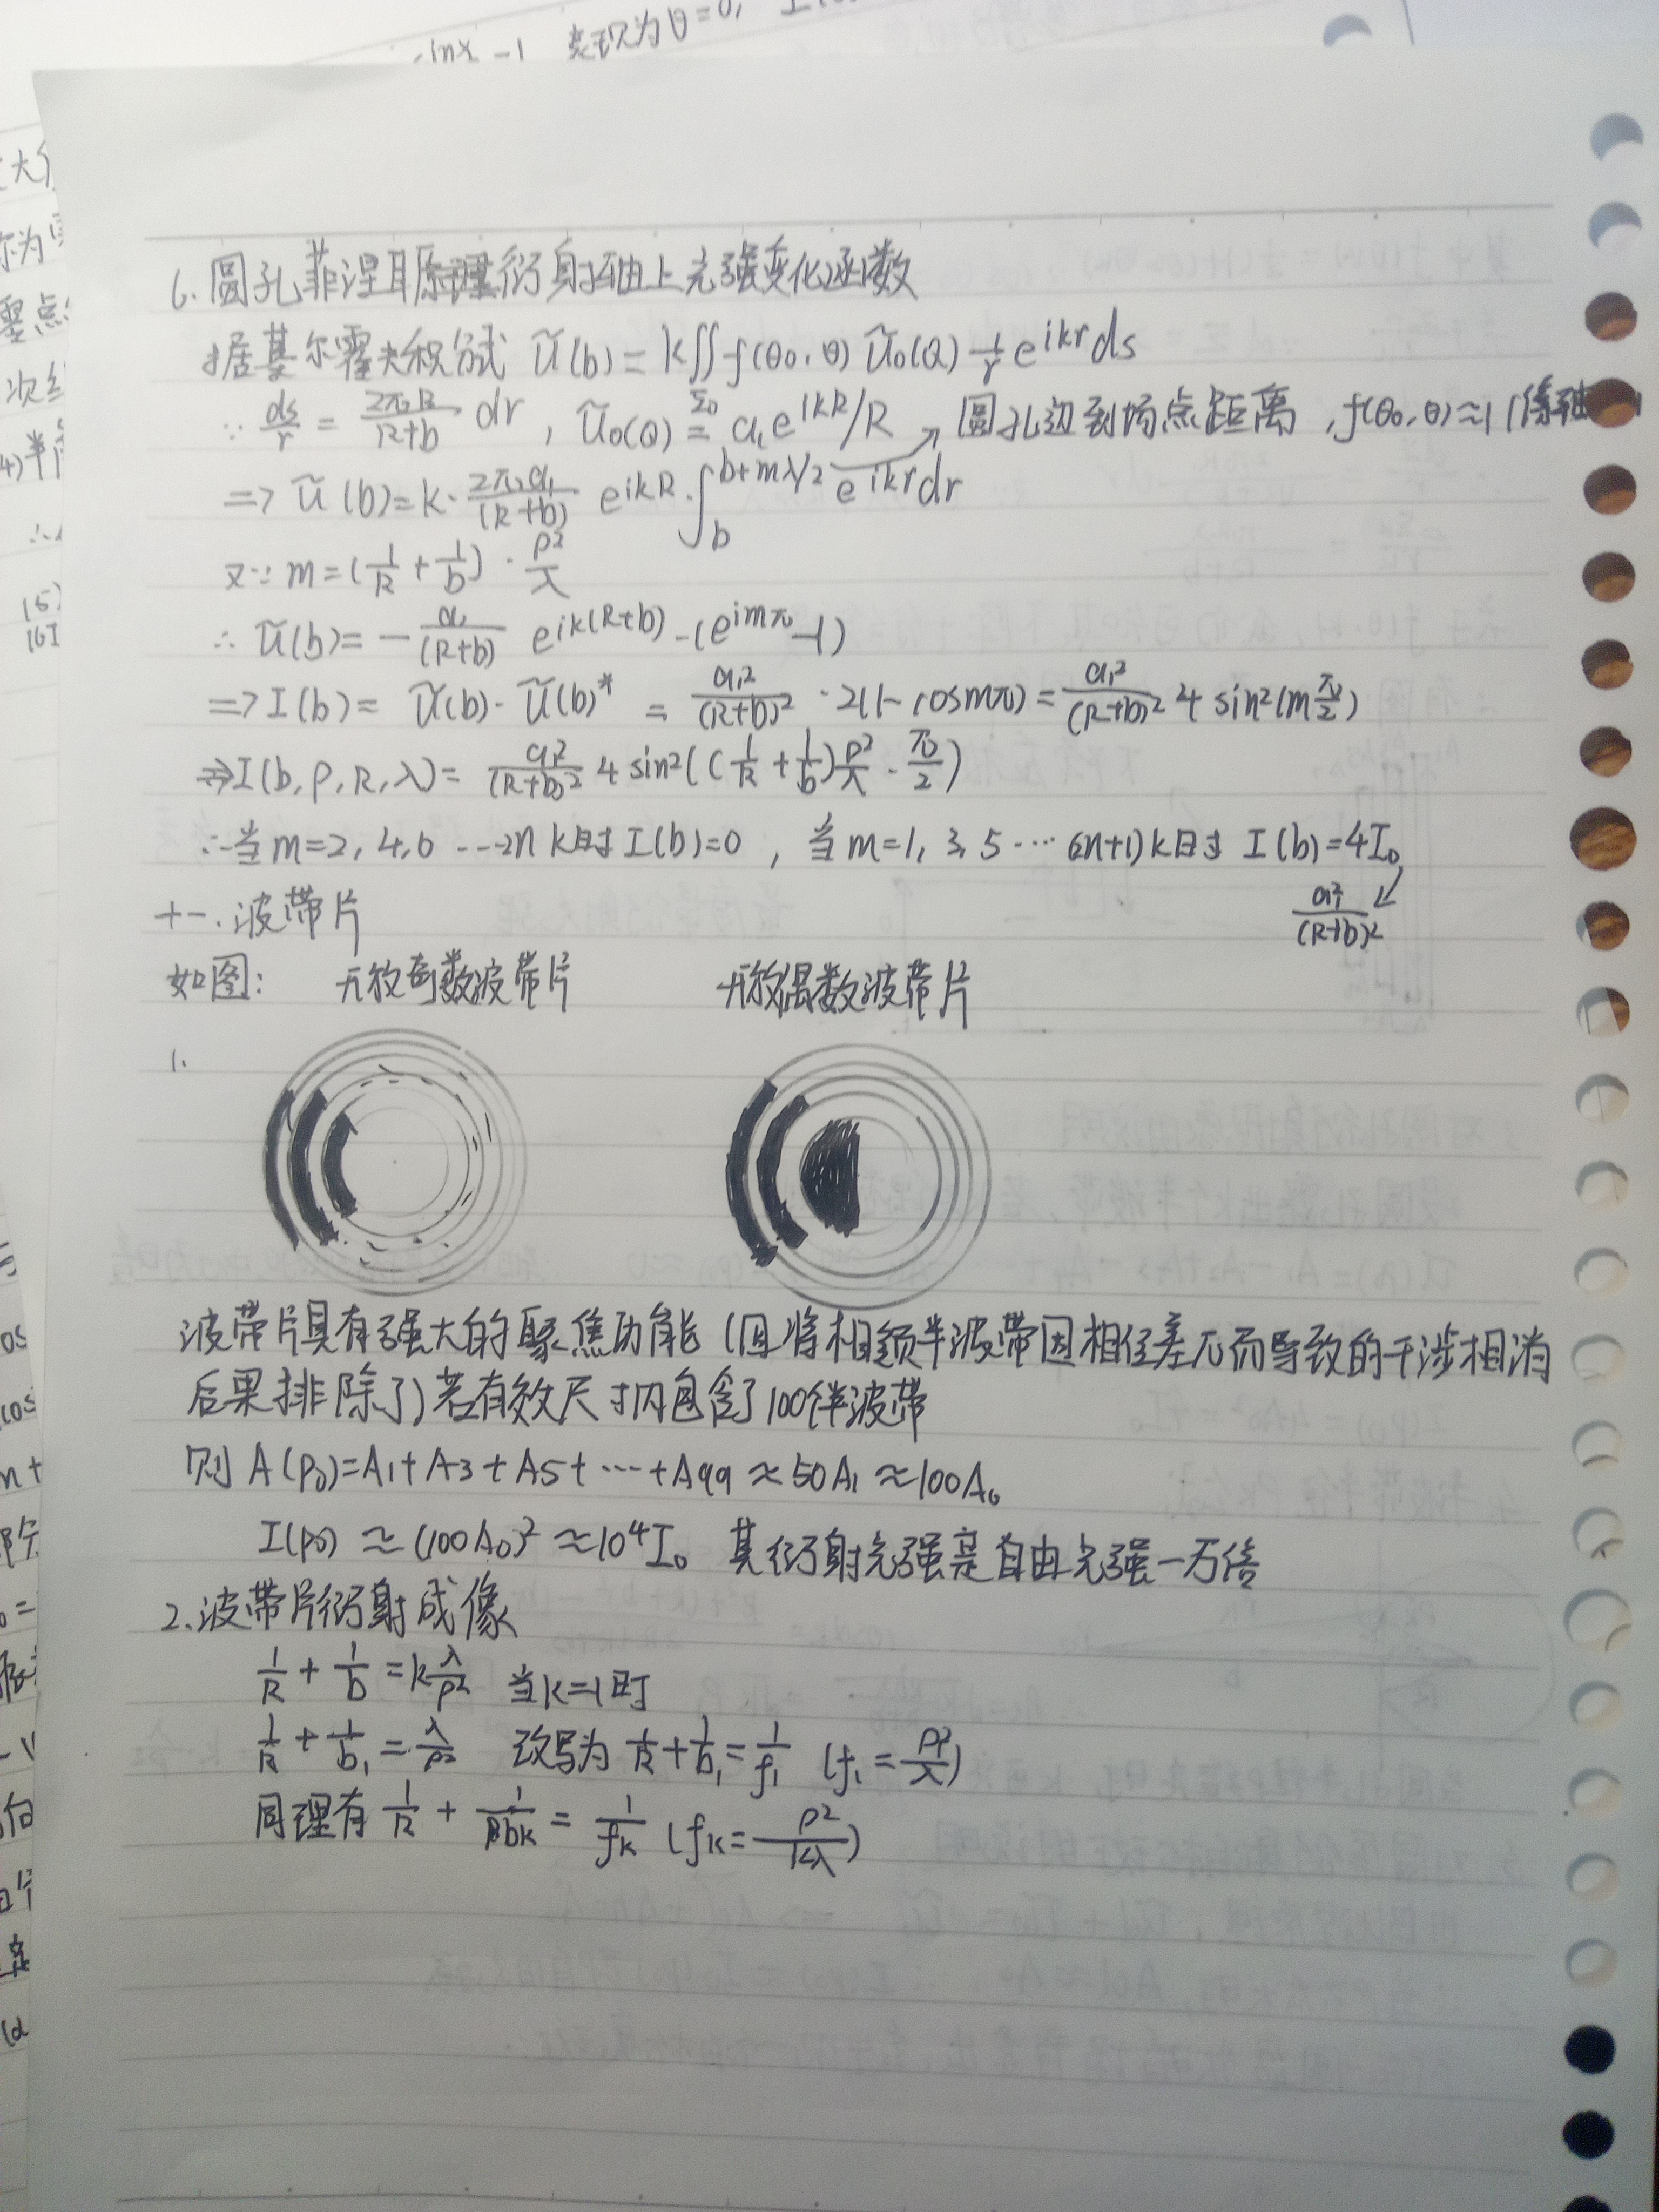 sinx -1 表现为θ=0,
6.圆孔菲涅耳衍射轴上光强变化函数
据基尔霍夫积分式 Ũ(b)=K∬f(θ0,θ)Ũ0(Q) 1/r e^{ikr}ds
Σ0
∵ ds/r = 2πR/(R+b) dr , Ũ0(Q)=a1e^{ikR}/R 圆孔边到场点距离,f(θ0,θ)≈1(傍轴
=> Ũ(b)=K·2πa1/(R+b) e^{ikR}·∫_b^{b+mλ/2} e^{ikr}dr
又∵ m=(1/R+1/b)·ρ²/λ
∴ Ũ(b)=-a1/(R+b) e^{ik(R+b)}-(e^{imπ}-1)
=> I(b)= Ũ(b)·Ũ(b)* = a1²/(R+b)²·2(1-cosmπ)=a1²/(R+b)² 4 sin²(mπ/2)
=>I(b,ρ,R,λ)= a1²/(R+b)² 4 sin²((1/R+1/b)ρ²/λ·π/2)
∴当m=2,4,6---2n k时I(b)=0 , 当m=1,3,5…(2n+1)k时 I(b)=4I0
a1²/(R+b)²
十一.波带片
如图: 开放奇数波带片 开放偶数波带片
1.
波带片具有强大的聚焦功能(因将相领半波带因相位差π而导致的干涉相消
后果排除了)若有效尺寸内包含了100个半波带
则 A(P0)=A1+A3+A5+…+A99≈50A1≈100A0
I(P0)≈(100A0)²≈10⁴I0 其衍射光强是自由光强一万倍
2.波带片衍射成像
1/R+1/b=kλ/ρ² 当k=1时
1/R+1/b1=λ/ρ² 改写为 1/R+1/b1=1/f1 (f1=ρ²/λ)
同理有 1/R+1/bk=1/fk (fk=ρ²/kλ)